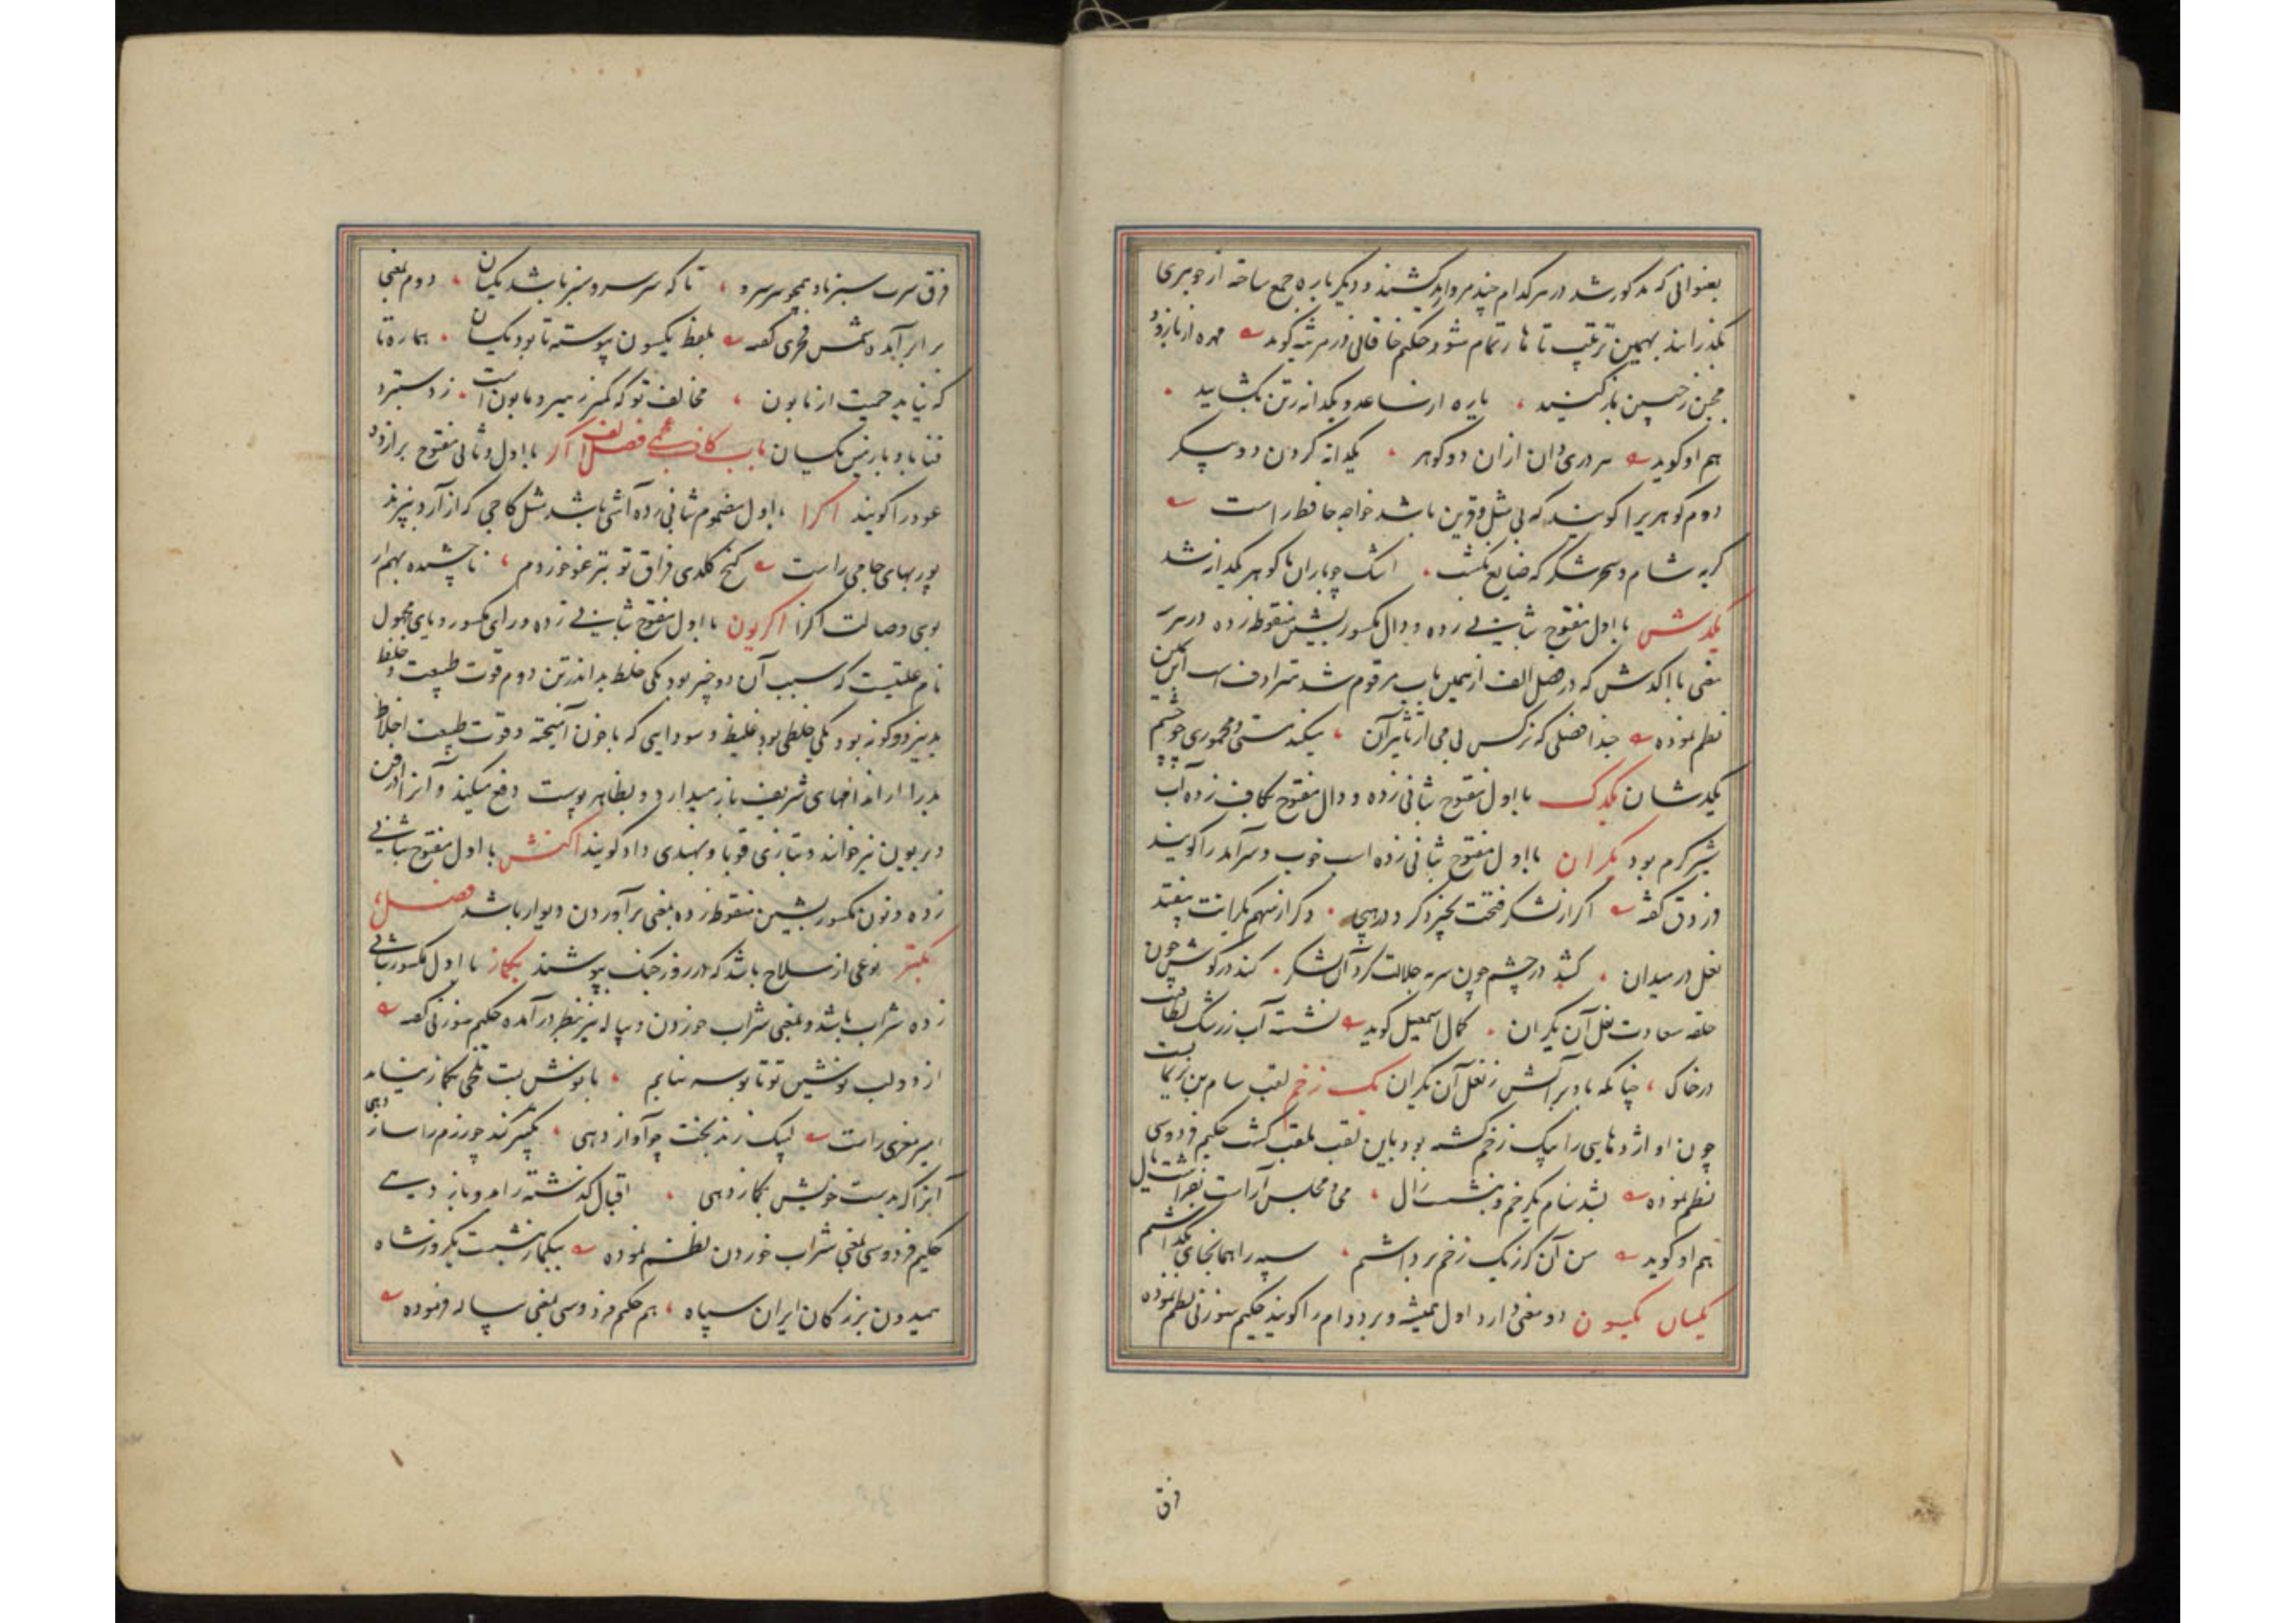 بعنوانی که مذکور شد در هر کدام چند مروارید کشند و دیگر باره جمع ساخته از جوهری
بگذرانند بهمین ترتیب تا هار تمام شود حکیم خاقانی در مرثیه گوید مهره از بازو
باز کنید یاره از ساعد و یکدانه ز تن بگشایید
هم او گوید سر دری دان از ان دو گوهر یکدانه کردن دو پیکر
دوم گوهریرا گویند که بی مثل و قرین باشد خواجه حافظ راست
گریه شام و سحر شکر که ضایع نگشت اشک چو باران ما گوهر یکدانه شد
یکدش با اول مفتوح بثانی زده و دال مکسور بشین منقوطه زده در هر
معنی با اکدش که در فصل الف از همین باب مرقوم شد مترادف است
نظم نموده حبذا فصلی که نرگس بی می از تاثیر آن میکند مستی و مخموری چو چشم
یکدشان یکدک با اول مفتوح بثانی زده و دال مفتوح بکاف زده آب
شیر گرم بود یکران با اول مفتوح بثانی زده اسب خوب و سرآمد را گویند
گفته اگر از لشکر فتحت بخیزد گرد در هیجا وگر از سهم یکرانت بیفتد
نعل در میدان کشد در چشم چون سرمه جلالت گرد آن لشکر کند در گوش چون
حلقه سعادت نعل آن یکران کمال اسمعیل گوید نشسته آب ز رشک لطافت
در خاک چنانکه باد بر آتش ز نعل آن یکران یک زخم لقب سام بن نریمان است
چون او اژدهایی را بیک زخم کشته بود باین لقب ملقب گشت حکیم فردوسی
نظم نموده بشد سام یکزخم و بنشست زال می و مجلس آراست
هم او گوید من آن گرز یک زخم برداشتم سپه را همانجای بگذاشتم
یکسان یکسون دو معنی دارد اول همیشه و بر دوام را گویند حکیم سوزنی نظم نموده
فرق
فرق سرت سبز باد همچو سر سرو تا که سر سرو سبز باشد یکسان دوم بمعنی
برابر آمده شمس فخری گفته بلفظ یکسون پیوسته تا بود یکسان هماره تا
که نیاید حمیت از مابون مخالف تو که کمتر ز هیز و مابون است ز دستبرد
فنا باد با زمین یکسان باب کاف عجمی فصل الف اگر با اول و ثانی مفتوح
عود را گویند اگرا با اول مضموم بثانی زده آشی باشد مثل کاچی که از آرد پزند
پور بهای جامی راست فراق تو بترغو خوردم ناچشیده
بوی وصالت اگرا اگریون با اول مفتوح بثانی زده و رای مکسور و یای مجهول
نام علتیست که سبب آن دو چیز بود یکی خلط بد اندر تن دوم قوت طبیعت و خلط
بد نیز دو گونه بود یکی خلطی بود غلیظ و سودایی که با خون آمیخته و قوت طبیعت اخلاط
بد را از اندامهای شریف باز میدارد و بظاهر پوست دفع میکند و آنرا
دربریون نیز خوانند و بتازی قوبا و بهندی داد گویند اگنش با اول مفتوح بثانی
زده و نون مکسور بشین منقوطه زده بمعنی برآوردن دیوار باشد فصل
بگتر نوعی از سلاح باشد که در روز جنگ بپوشند بگماز با اول مکسور بثانی
زده شراب باشد و بمعنی شراب خوردن و پیاله نیز بنظر در آمده حکیم سوزنی گفته
از دو لب نوشین تو تا بوسه نیابم با نوش لبت تلخی بگماز
امیر معزی راست لبیک زند بخت چو آواز دهی
آنرا که بدست خویش بگماز دهی اقبال گذشته را
حکیم فردوسی بمعنی شراب خوردن نظم نموده ببگماز بنشست یکروز شاه
همیدون بزرگان ایران سپاه هم حکیم فردوسی بمعنی پیاله فرموده